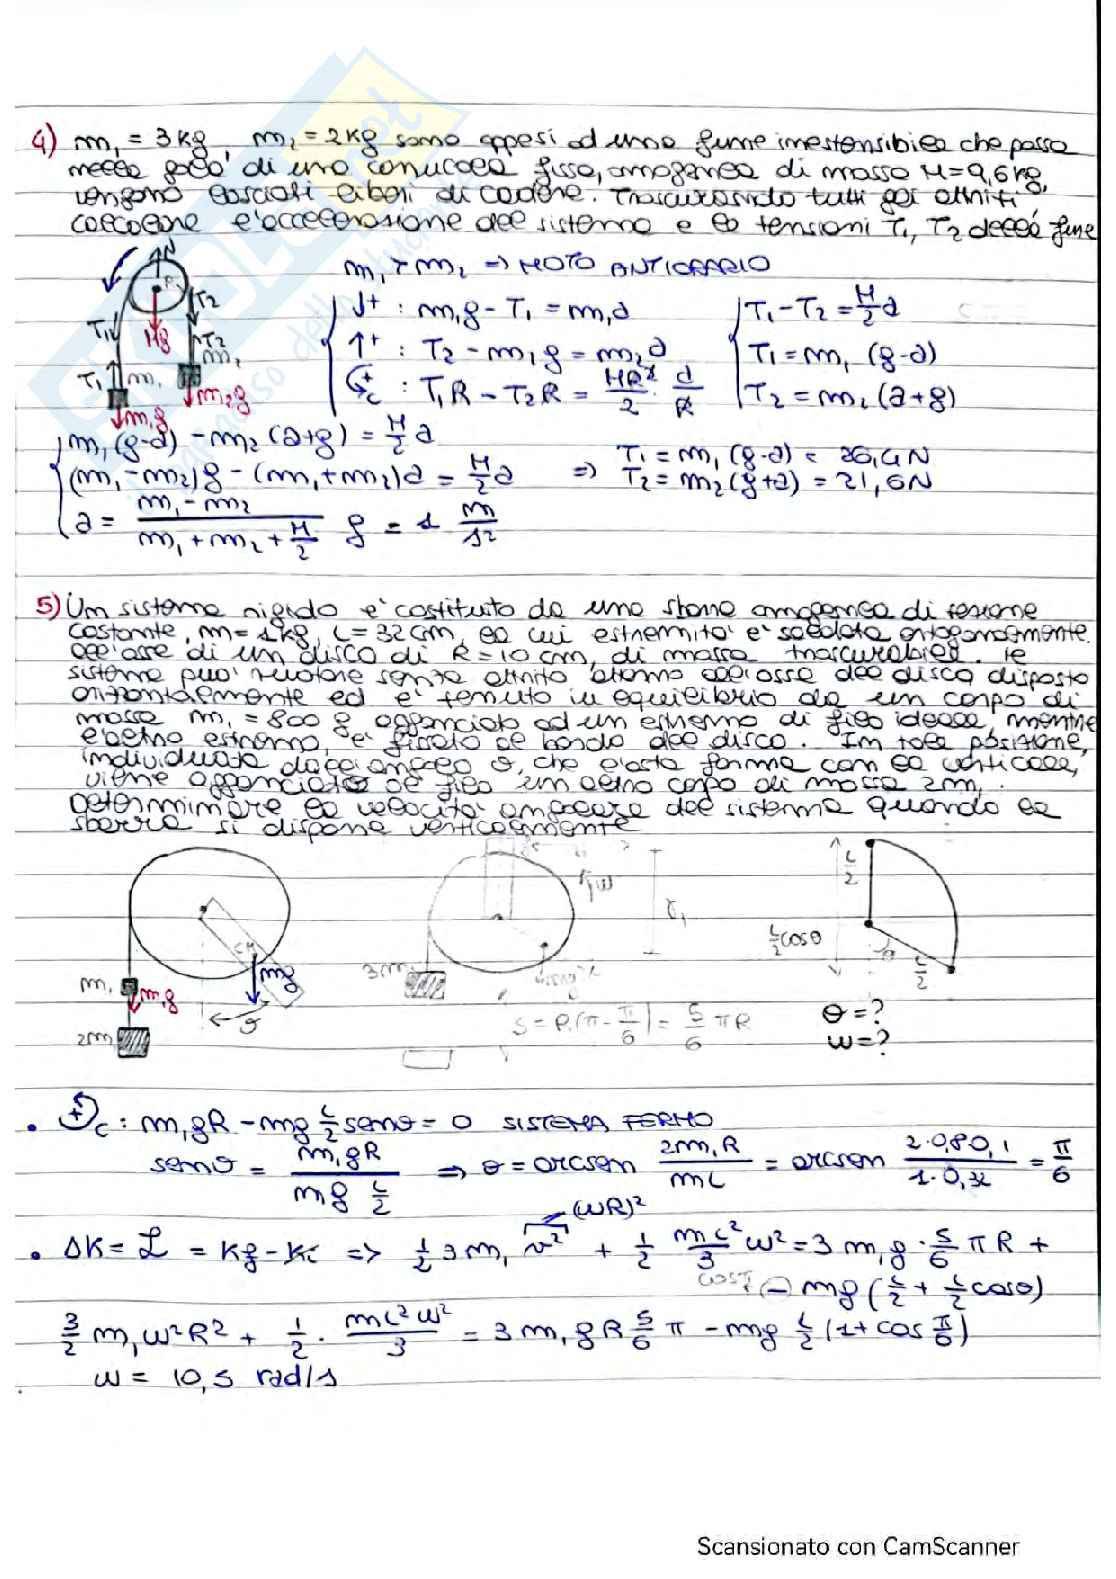 4) m₁ = 3 kg, m₂ = 2 kg sono appesi ad una fune inestensibile che passa
nella gola di una carrucola fissa, omogenea di massa M = 9,6 kg,
vengono lasciati liberi di cadere. Trascurando tutti gli attriti,
calcolare l'accelerazione del sistema e le tensioni T₁, T₂ della fune
m₁ > m₂ => MOTO ANTIORARIO
↓+ : m₁g - T₁ = m₁a
↑+ : T₂ - m₁g = m₂a
C+ : T₁R - T₂R = MR²/2 · a/R
T₁ - T₂ = M/2 a
T₁ = m₁ (g-a)
T₂ = m₂ (a+g)
N
R
T₁
T₂
Mg
T₂
m₂
T₁
m₁
m₂g
m₁g
m₁(g-a) - m₂(a+g) = M/2 a
(m₁ - m₂)g - (m₁+m₂)a = M/2 a
a = m₁ - m₂ / m₁ + m₂ + M/2 g = 1 m/s²
=> T₁ = m₁ (g-a) = 26,4N
T₂ = m₂ (g+a) = 21,6N
5) Un sistema rigido e' costituito da una sbarra omogenea di sezione
costante, m = 1 kg, L = 32 cm, la cui estremita' e' saldata ortogonalmente
all'asse di un disco di R = 10 cm, di massa trascurabile. Il
sistema puo' ruotare senza attrito attorno all'asse del disco disposto
orizzontalmente ed e' tenuto in equilibrio da un corpo di
massa m₁ = 800 g agganciato ad un estremo di filo ideale, mentre
l'altro estremo, e' fissato al bordo del disco. In tale posizione,
individuata dall'angolo θ, che l'asta forma con la verticale,
viene agganciato al filo un altro corpo di massa 2m₁.
Determinare la velocita' angolare del sistema quando la
sbarra si dispone verticalmente
CM
mg
m₁
m₁g
2m₁
θ
ω
3m₁
S = R(π - π/6) = 5/6 πR
L/2
L/2 cosθ
θ
L/2
θ = ?
ω = ?
• C+ : m₁gR - mg L/2 senθ = 0 SISTEMA FERMO
senθ = m₁gR / mg L/2 => θ = arcsen 2m₁R/mL = arcsen 2·0,8·0,1/1·0,32 = π/6
(ωR)²
• ΔK = L = Kf - Ki => 1/2 3m₁ v² + 1/2 mL²/3 ω² = 3 m₁g · 5/6 πR +
- mg (L/2 + L/2 cosθ)
3/2 m₁ω²R² + 1/2 · mL²ω²/3 = 3 m₁gR 5/6 π - mg L/2 (1+cos π/6)
ω = 10,5 rad/s
Scansionato con CamScanner